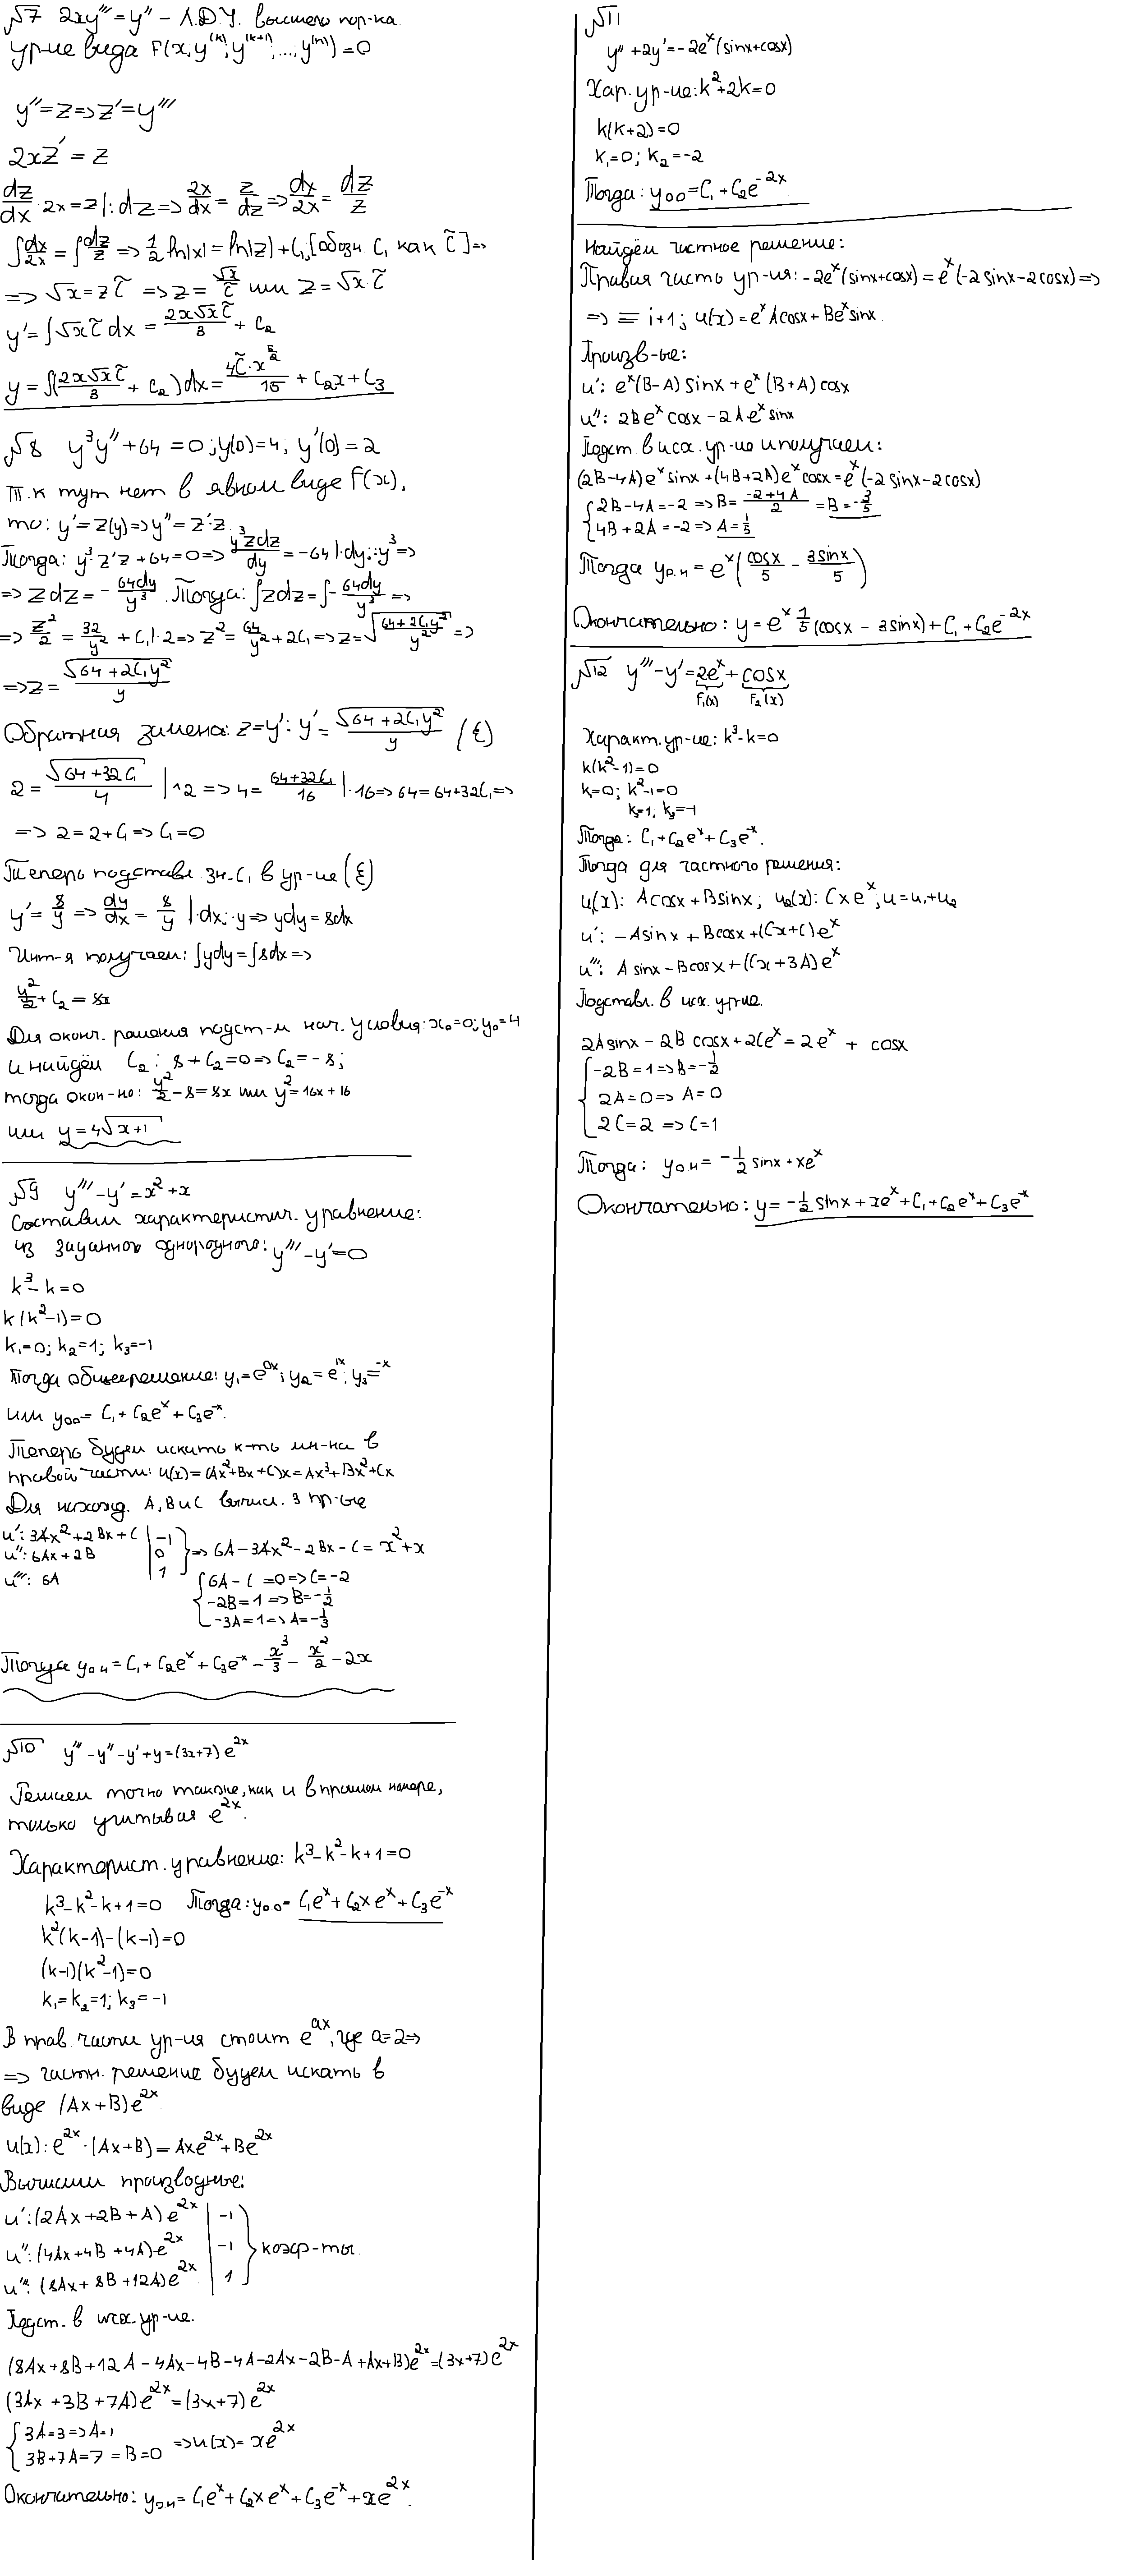 №7 2xy''' = y'' – Л.Д.У. высшего пор-ка.
ур-ие вида F(x, y^(k), y^(k+1), ..., y^(n)) = 0
y'' = z => z' = y'''
2xz' = z
dz/dx · 2x = z |: dz => 2x/dx = z/dz => dx/2x = dz/z
∫dx/2x = ∫dz/z => 1/2 ln|x| = ln|z| + C₁, [обозн. C₁ как C̃] =>
=> √x = z C̃ => z = √x/C̃ или z = √x C̃
y' = ∫√x C̃ dx = 2x√x C̃/3 + C₂
y = ∫(2x√x C̃/3 + C₂)dx = 4C̃·x^(5/2)/15 + C₂x + C₃
№8 y³y'' + 64 = 0; y(0)=4; y'(0)=2
Т.к тут нет в явном виде F(x),
то: y' = z(y) => y'' = z'z.
Тогда: y³·z'z + 64 = 0 => y³zdz/dy = -64 |·dy:y³ =>
=> zdz = - 64dy/y³. Тогда: ∫zdz = ∫- 64dy/y³ =>
=> z²/2 = 32/y² + C₁|·2 => z² = 64/y² + 2C₁ => z = √((64+2C₁y²)/y²) =>
=> z = √(64+2C₁y²)/y
Обратная замена: z=y': y' = √(64+2C₁y²)/y (ξ)
2 = √(64+32C₁)/4 |^2 => 4 = (64+32C₁)/16 |·16 => 64 = 64+32C₁ =>
=> 2 = 2+C₁ => C₁ = 0
Теперь подставл. зн. C₁ в ур-ие (ξ)
y' = 8/y => dy/dx = 8/y |·dx;·y => ydy = 8dx
Инт-я получаем: ∫ydy = ∫8dx =>
y²/2 + C₂ = 8x
Для оконч. решения подст-м нач. условия: x₀=0; y₀=4
и найдём C₂: 8 + C₂ = 0 => C₂ = -8;
тогда окон-но: y²/2 - 8 = 8x или y² = 16x + 16
или y = 4√(x+1)
№9 y''' - y' = x² + x
Составим характеристич. уравнение:
из заданного однородного: y''' - y' = 0
k³ - k = 0
k(k²-1) = 0
k₁=0; k₂=1; k₃=-1
Тогда общее решение: y₁=e^(0x); y₂=e^(1x); y₃=^(-x)
или y₀₀ = C₁ + C₂e^x + C₃e^(-x).
Теперь будем искать к-ты мн-на в
правой части: u(x) = (Ax²+Bx+C)x = Ax³+Bx²+Cx
Для нахожд. A, B и C вычисл. 3 пр-ые
u': 3Ax²+2Bx+C | -1
u'': 6Ax+2B | 0 } => 6A-3Ax²-2Bx-C = x²+x
u''': 6A | 1
{ 6A-C = 0 => C = -2
-2B = 1 => B = -1/2
-3A = 1 => A = -1/3
Тогда y₀н = C₁ + C₂e^x + C₃e^(-x) - x³/3 - x²/2 - 2x
№10 y''' - y'' - y' + y = (3x+7)e^(2x)
Решаем точно также, как и в прошлом номере,
только учитывая e^(2x).
Характерист. уравнение: k³-k²-k+1=0
k³-k²-k+1=0 Тогда: y₀₀ = C₁e^x + C₂xe^x + C₃e^(-x)
k²(k-1)-(k-1)=0
(k-1)(k²-1)=0
k₁=k₂=1; k₃=-1
В прав. части ур-ия стоит e^(ax), где a=2 =>
=> частн. решение будем искать в
виде (Ax+B)e^(2x)
u(x): e^(2x)·(Ax+B) = Axe^(2x)+Be^(2x)
Вычислим производные:
u': (2Ax+2B+A)e^(2x) | -1
u'': (4Ax+4B+4A)·e^(2x) | -1 } коэф-ты.
u''': (8Ax+8B+12A)e^(2x) | 1
Подст. в исх. ур-ие.
(8Ax+8B+12A-4Ax-4B-4A-2Ax-2B-A+Ax+B)e^(2x) = (3x+7)e^(2x)
(3Ax+3B+7A)e^(2x) = (3x+7)e^(2x)
{ 3A=3 => A=1
3B+7A=7 = B=0 => u(x) = xe^(2x)
Окончательно: y₀н = C₁e^x + C₂xe^x + C₃e^(-x) + xe^(2x).
№11
y'' + 2y' = -2e^x(sinx+cosx)
Хар. ур-ие: k²+2k=0
k(k+2)=0
k₁=0; k₂=-2
Тогда: y₀₀ = C₁ + C₂e^(-2x)
Найдём частное решение:
Правая часть ур-ия: -2e^x(sinx+cosx) = e^x(-2sinx-2cosx) =>
=> ≡ i+1; u(x) = e^x Acosx + Be^x sinx.
Произв-ые:
u': e^x(B-A)sinx + e^x(B+A)cosx
u'': 2Be^x cosx - 2Ae^x sinx
Подст. в исх. ур-ие и получаем:
(2B-4A)e^x sinx + (4B+2A)e^x cosx = e^x(-2sinx-2cosx)
{ 2B-4A=-2 => B = (-2+4A)/2 = B = -3/5
4B+2A=-2 => A = 1/5
Тогда yр.н = e^x(cosx/5 - 3sinx/5)
Окончательно: y = e^x 1/5(cosx - 3sinx) + C₁ + C₂e^(-2x)
№12 y''' - y' = 2e^x + cosx
F₁(x) F₂(x)
Характ. ур-ие: k³-k=0
k(k²-1)=0
k₁=0; k²-1=0
k₂=1; k₃=-1
Тогда: C₁+C₂e^x+C₃e^(-x).
Тогда для частного решения:
u₁(x): Acosx+Bsinx; u₂(x): Cxe^x; u=u₁+u₂
u': -Asinx+Bcosx+(Cx+C)e^x
u''': Asinx-Bcosx+(Cx+3A)e^x
Подставл. в исх. ур-ие.
2Asinx - 2Bcosx + 2Ce^x = 2e^x + cosx
{ -2B=1 => B=-1/2
2A=0 => A=0
2C=2 => C=1
Тогда: y₀н = -1/2 sinx + xe^x
Окончательно: y = -1/2 sinx + xe^x + C₁ + C₂e^x + C₃e^(-x)